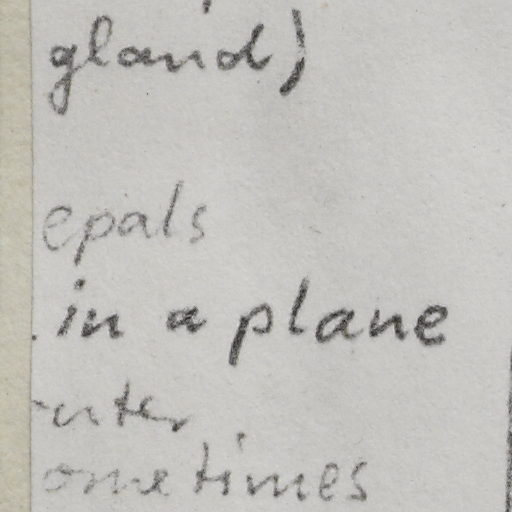 gland)
epals
in a plane
uter
ometimes